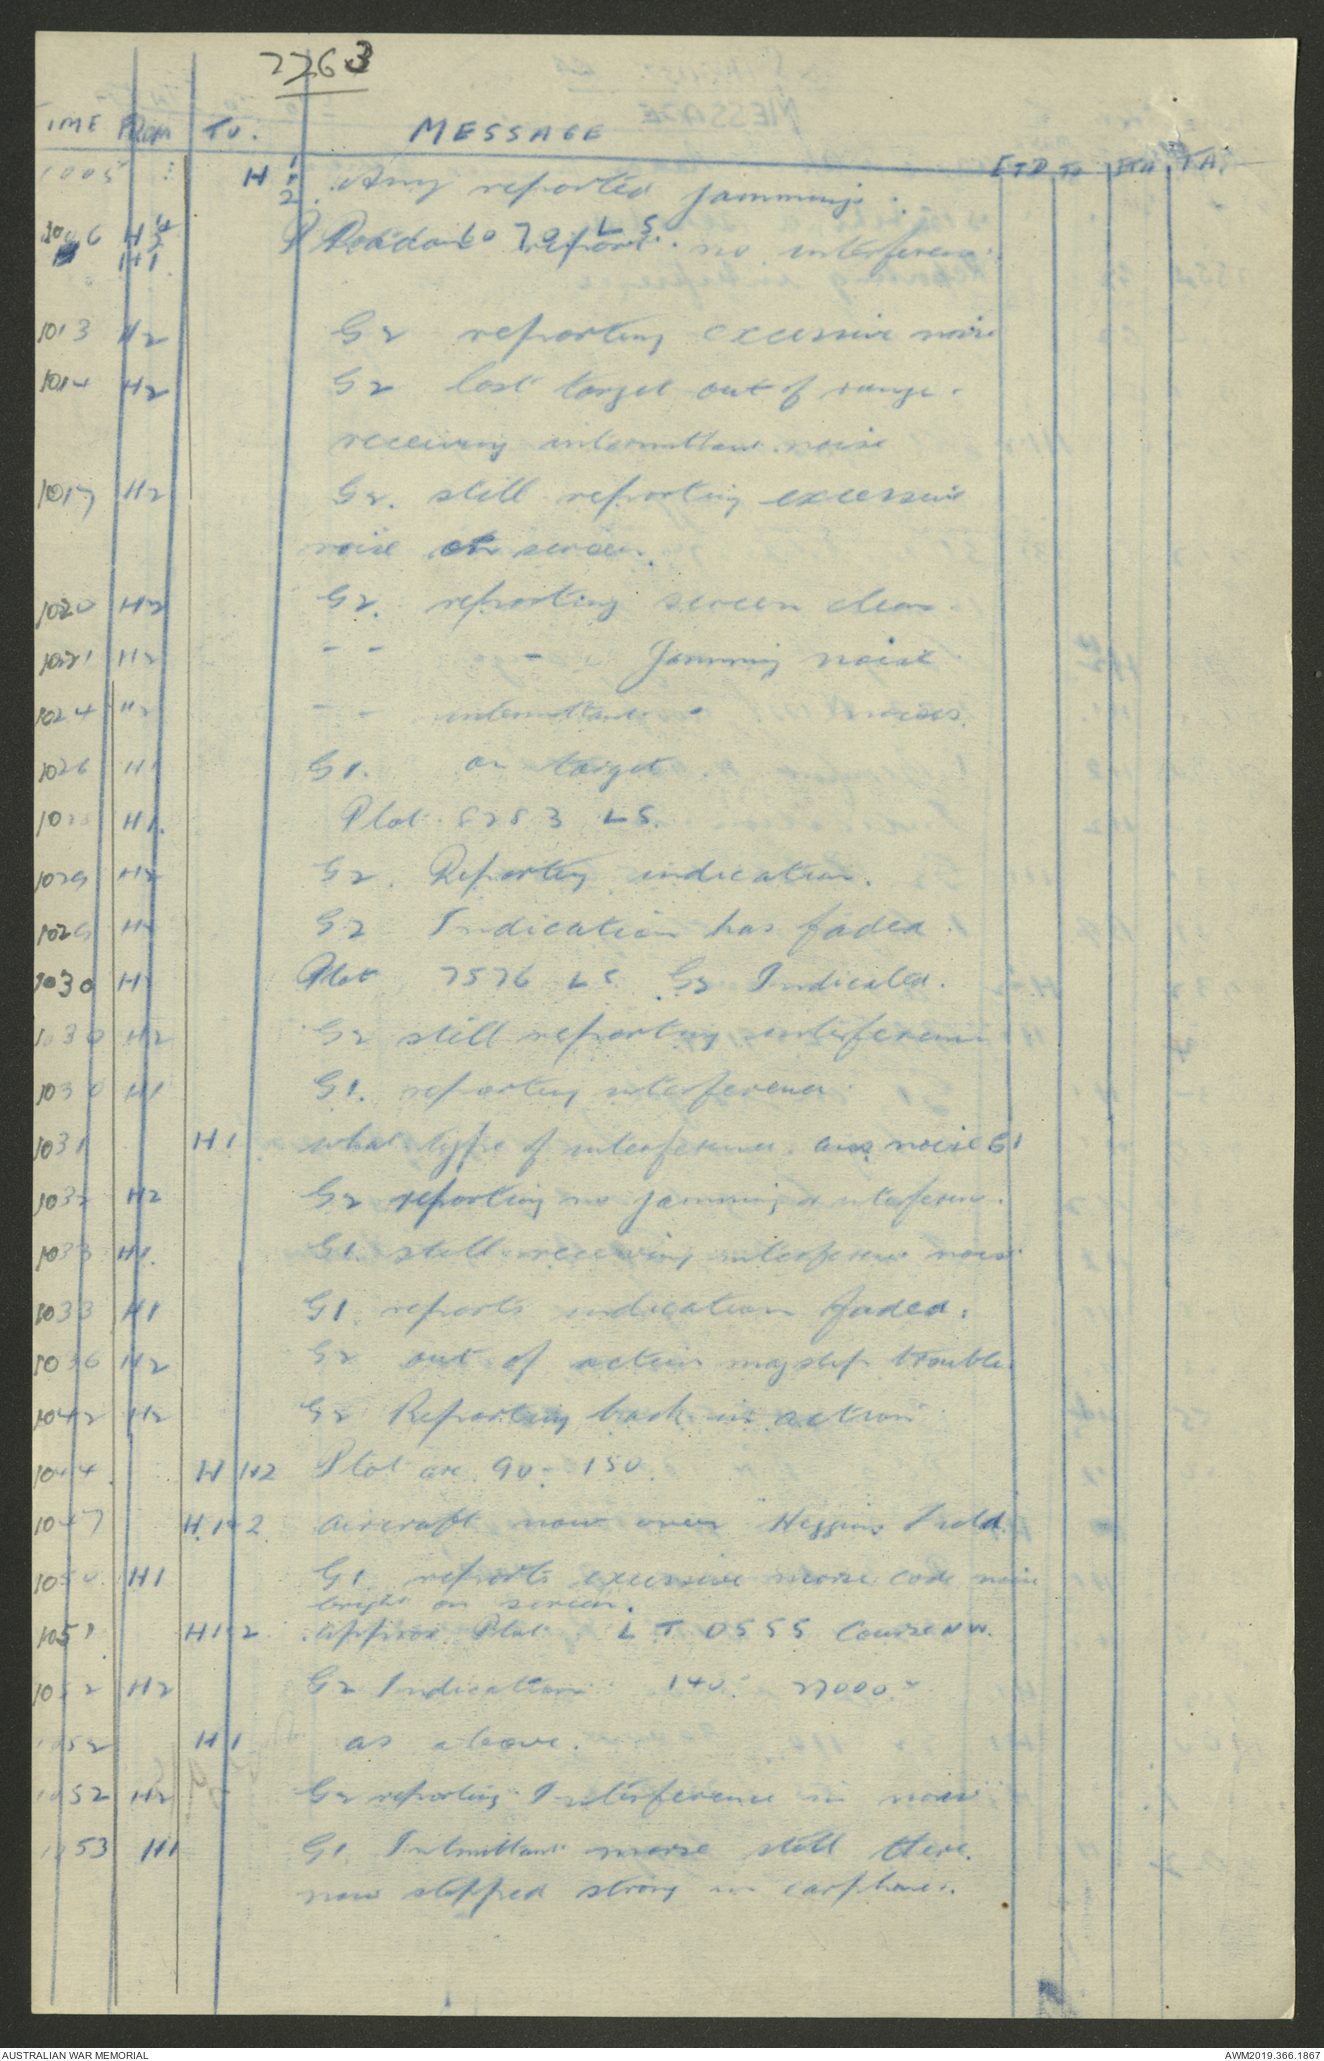 2263
TIME FROM To. MESSAGE
ETD TO ETA TA.
1005 H 1 2. Any reported jamming.
1006 H2 H1 6070 LS report no interference.
1013 H2 G2 reporting excessive noise
1014 H2 G2 lost target out of range.
receiving intermittant noise
1017 H2 G2. still reporting excessive
noise on screen.
1020 H2 G2. reporting screen clear.
1021 H2 - - - Jamming noise
1024 H2 - - intermittant noises.
1026 H1 G1. on target.
H1. Plot 5253 LS.
1029 H2 G2. Reporting indication.
1029 H2 G2 Indication has faded.
1030 H2 Plot 7576 LS. G2 Indicated.
1030 H2 G2 still reporting interference
1030 H1 G1. reporting interference
1031 H1 what type of interference. ans noise G1
1032 H2 G2 reporting no jamming or interferenc.
1033 H1. G1. still receiving interference noise
1033 H1 G1. reports indication faded.
1036 H2 G2 out of action magslip trouble.
1042 H2 G2 Reporting back in action
1044 H H2 Plot arc 90 - 150.
1047 H.1+2 aircraft now over Higgins Field.
1050 H1 G1 reports excessive morse code noise
bright on screen.
1051 H1+2 approx Plot LT 0555 Course NW.
1052 H2 G2 Indication 140° 27000.x
1052 H1 as above.
1052 H2 G2 reporting Interference in noise
1053 H1 G1 Intmittant morse still there.
now stopped strong in earphones.
AUSTRALIAN WAR MEMORIAL
AWM2019.366.1867